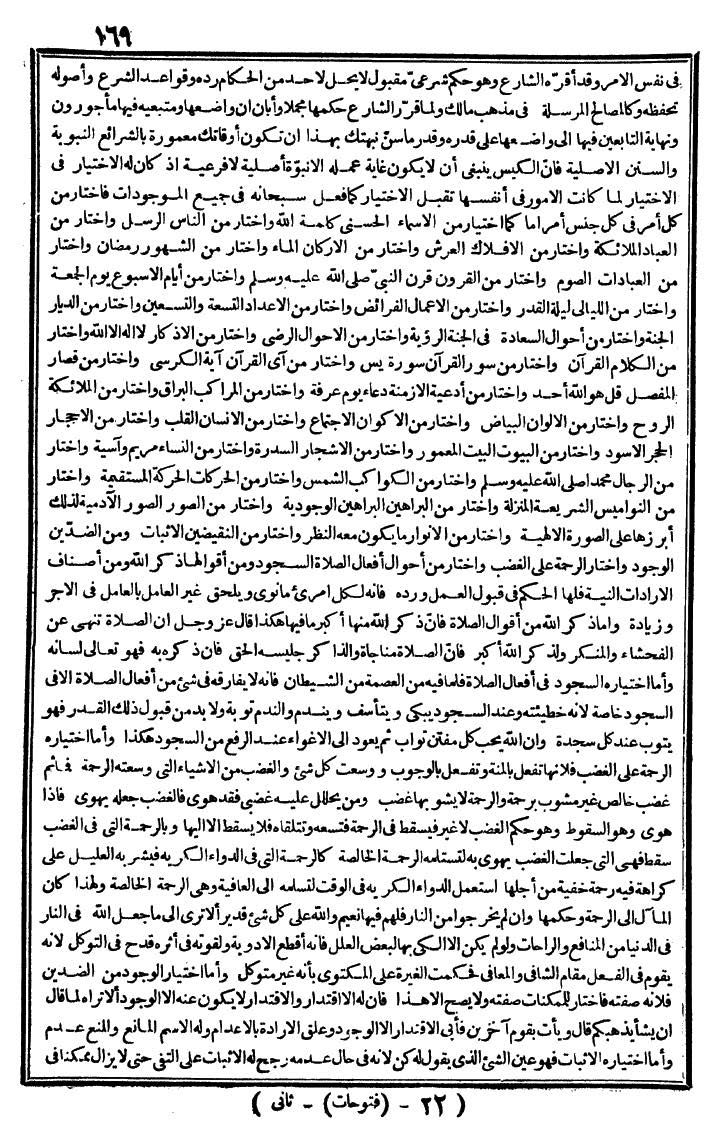 ١٦٩
فى نفس الامر وقد أقرّه الشارع وهو حكم شرعىّ مقبول لا يحل لاحد من الحكام رده وقواعد الشرع وأصوله
تحفظه وكالمصالح المرسلة فى مذهب مالك ولما قرّر الشارع حكمها مجملا وأبان ان واضعها ومتبعيه فيها مأجورون
ونهاية التابعين فيها الى واضعها على قدره وقدر ماسنّ نبهتك بهذا ان تكون أوقاتك معمورة بالشرائع النبوية
والسنن الاصلية فانّ الكيس ينبغى أن لا يكون غاية عمله الانبوّة أصلية لا فرعية اذ كان له الاختيار فى
الاختيار لما كانت الامور فى أنفسها تقبل الاختيار كما فعل سبحانه فى جميع الموجودات فاختار من
كل أمر فى كل جنس أمراما كما اختيار من الاسماء الحسنى كلمة الله واختار من الناس الرسل واختار من
العباد الملائكة واختار من الافلاك العرش واختار من الاركان الماء واختار من الشهور رمضان واختار
من العبادات الصوم واختار من القرون قرن النبىّ صلى الله عليه وسلم واختار من أيام الاسبوع يوم الجمعة
واختار من الليالى ليلة القدر واختار من الاعمال الفرائض واختار من الاعداد التسعة والتسعين واختار من الديار
الجنة واختار من أحوال السعادة فى الجنة الرؤية واختار من الاحوال الرضى واختار من الاذكار لا اله الا الله واختار
من الكلام القرآن واختار من سور القرآن سورة يس واختار من آى القرآن آية الكرسى واختار من قصار
المفصل قل هو الله أحد واختار من أدعية الازمنة دعاء يوم عرفة واختار من المراكب البراق واختار من الملائكة
الروح واختار من الالوان البياض واختار من الاكوان الاجتماع واختار من الانسان القلب واختار من الاحجار
الحجر الاسود واختار من البيوت البيت المعمور واختار من الاشجار السدرة واختار من النساء مريم وآسية واختار
من الرجال محمدا صلى الله عليه وسلم واختار من الكواكب الشمس واختار من الحركات الحركة المستقيمة واختار
من النواميس الشريعة المنزلة واختار من البراهين البراهين الوجودية واختار من الصور الصور الآدمية لذلك
أبرزها على الصورة الالهية واختار من الانوار ما يكون معه النظر واختار من النقيضين الاثبات ومن الضدّين
الوجود واختار الرحمة على الغضب واختار من أحوال أفعال الصلاة السجود ومن أقوالها ذكر الله ومن أصناف
الارادات النية فلها الحكم فى قبول العمل ورده فانه لكل امرئ ما نوى ويلحق غير العامل بالعامل فى الاجر
وزيادة واما ذكر الله من أقوال الصلاة فانّ ذكر الله منها أكبر ما فيها هكذا قال عز وجل ان الصلاة تنهى عن
الفحشاء والمنكر ولذكر الله أكبر فانّ الصلاة مناجاة والذاكر جليسه الحق فان ذكره به فهو تعالى لسانه
وأما اختياره السجود فى أفعال الصلاة فلما فيه من العصمة من الشيطان فانه لا يفارقه فى شئ من أفعال الصلاة الا فى
السجود خاصة لانه خطيئته وعند السجود يبكى ويتأسف ويندم والندم توبة ولا بد من قبول ذلك القدر فهو
يتوب عند كل سجدة وان الله يحب كل مفتن تواب ثم يعود الى الاغواء عند الرفع من السجود هكذا وأما اختياره
الرحمة على الغضب فلانها تفعل بالمنة وتفعل بالوجوب ووسعت كل شئ والغضب من الاشياء التى وسعته الرحمة فما ثم
غضب خالص غير مشوب برحمة والرحمة لا يشوبها غضب ومن يحلل عليه غضبى فقد هوى فالغضب جعله يهوى فاذا
هوى وهو السقوط وهو حكم الغضب لا غير فيسقط فى الرحمة فتسعه وتتلقاه فلا يسقط الا اليها وبالرحمة التى فى الغضب
سقط فهى التى جعلت الغضب يهوى به لتستلمه الرحمة الخالصة كالرحمة التى فى الدواء الكريه فيشربه العليل على
كراهة فيه رحمة خفية من أجلها استعمل الدواء الكريه فى الوقت لتسلمه الى العافية وهى الرحمة الخالصة ولهذا كان
المآل الى الرحمة وحكمها وان لم يخرجوا من النار فلهم فيها نعيم والله على كل شئ قدير ألا ترى الى ما جعل الله فى النار
فى الدنيا من المنافع والراحات ولو لم يكن الا الكى بها لبعض العلل فانه أقطع الادوية ولقوته فى أثره قدح فى التوكل لانه
يقوم فى الفعل مقام الشافى والمعافى فحكمت الغيرة على المكتوى بأنه غير متوكل وأما اختيار الوجود من الضدين
فلانه صفته فاختار للممكنات صفته ولا يصح الا هذا فان له الاقتدار والاقتدار لا يكون عنه الا الوجود ألا تراه لما قال
ان يشأ يذهبكم قال ويأت بقوم آخرين فأبى الاقتدار الا الوجود وعلق الارادة بالاعدام وله الاسم المانع والمنع عدم
وأما اختياره الاثبات فهو عين الشئ الذى يقول له كن لانه فى حال عدمه رجح له الاثبات على النفى حتى لا يزال ممكنا فى
( ٢٢ - (فتوحات) - ثانى )